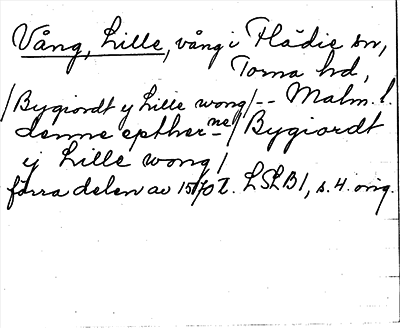 Vång, Lille, vång i Flädie sn,
Torna hd,
/Bygiordt y Lille wong/-- Malm. l.
denne epther ne /Bygiordt
y Lille wong/
förra delen av 1570 t. LSLB1, s. 4. orig.